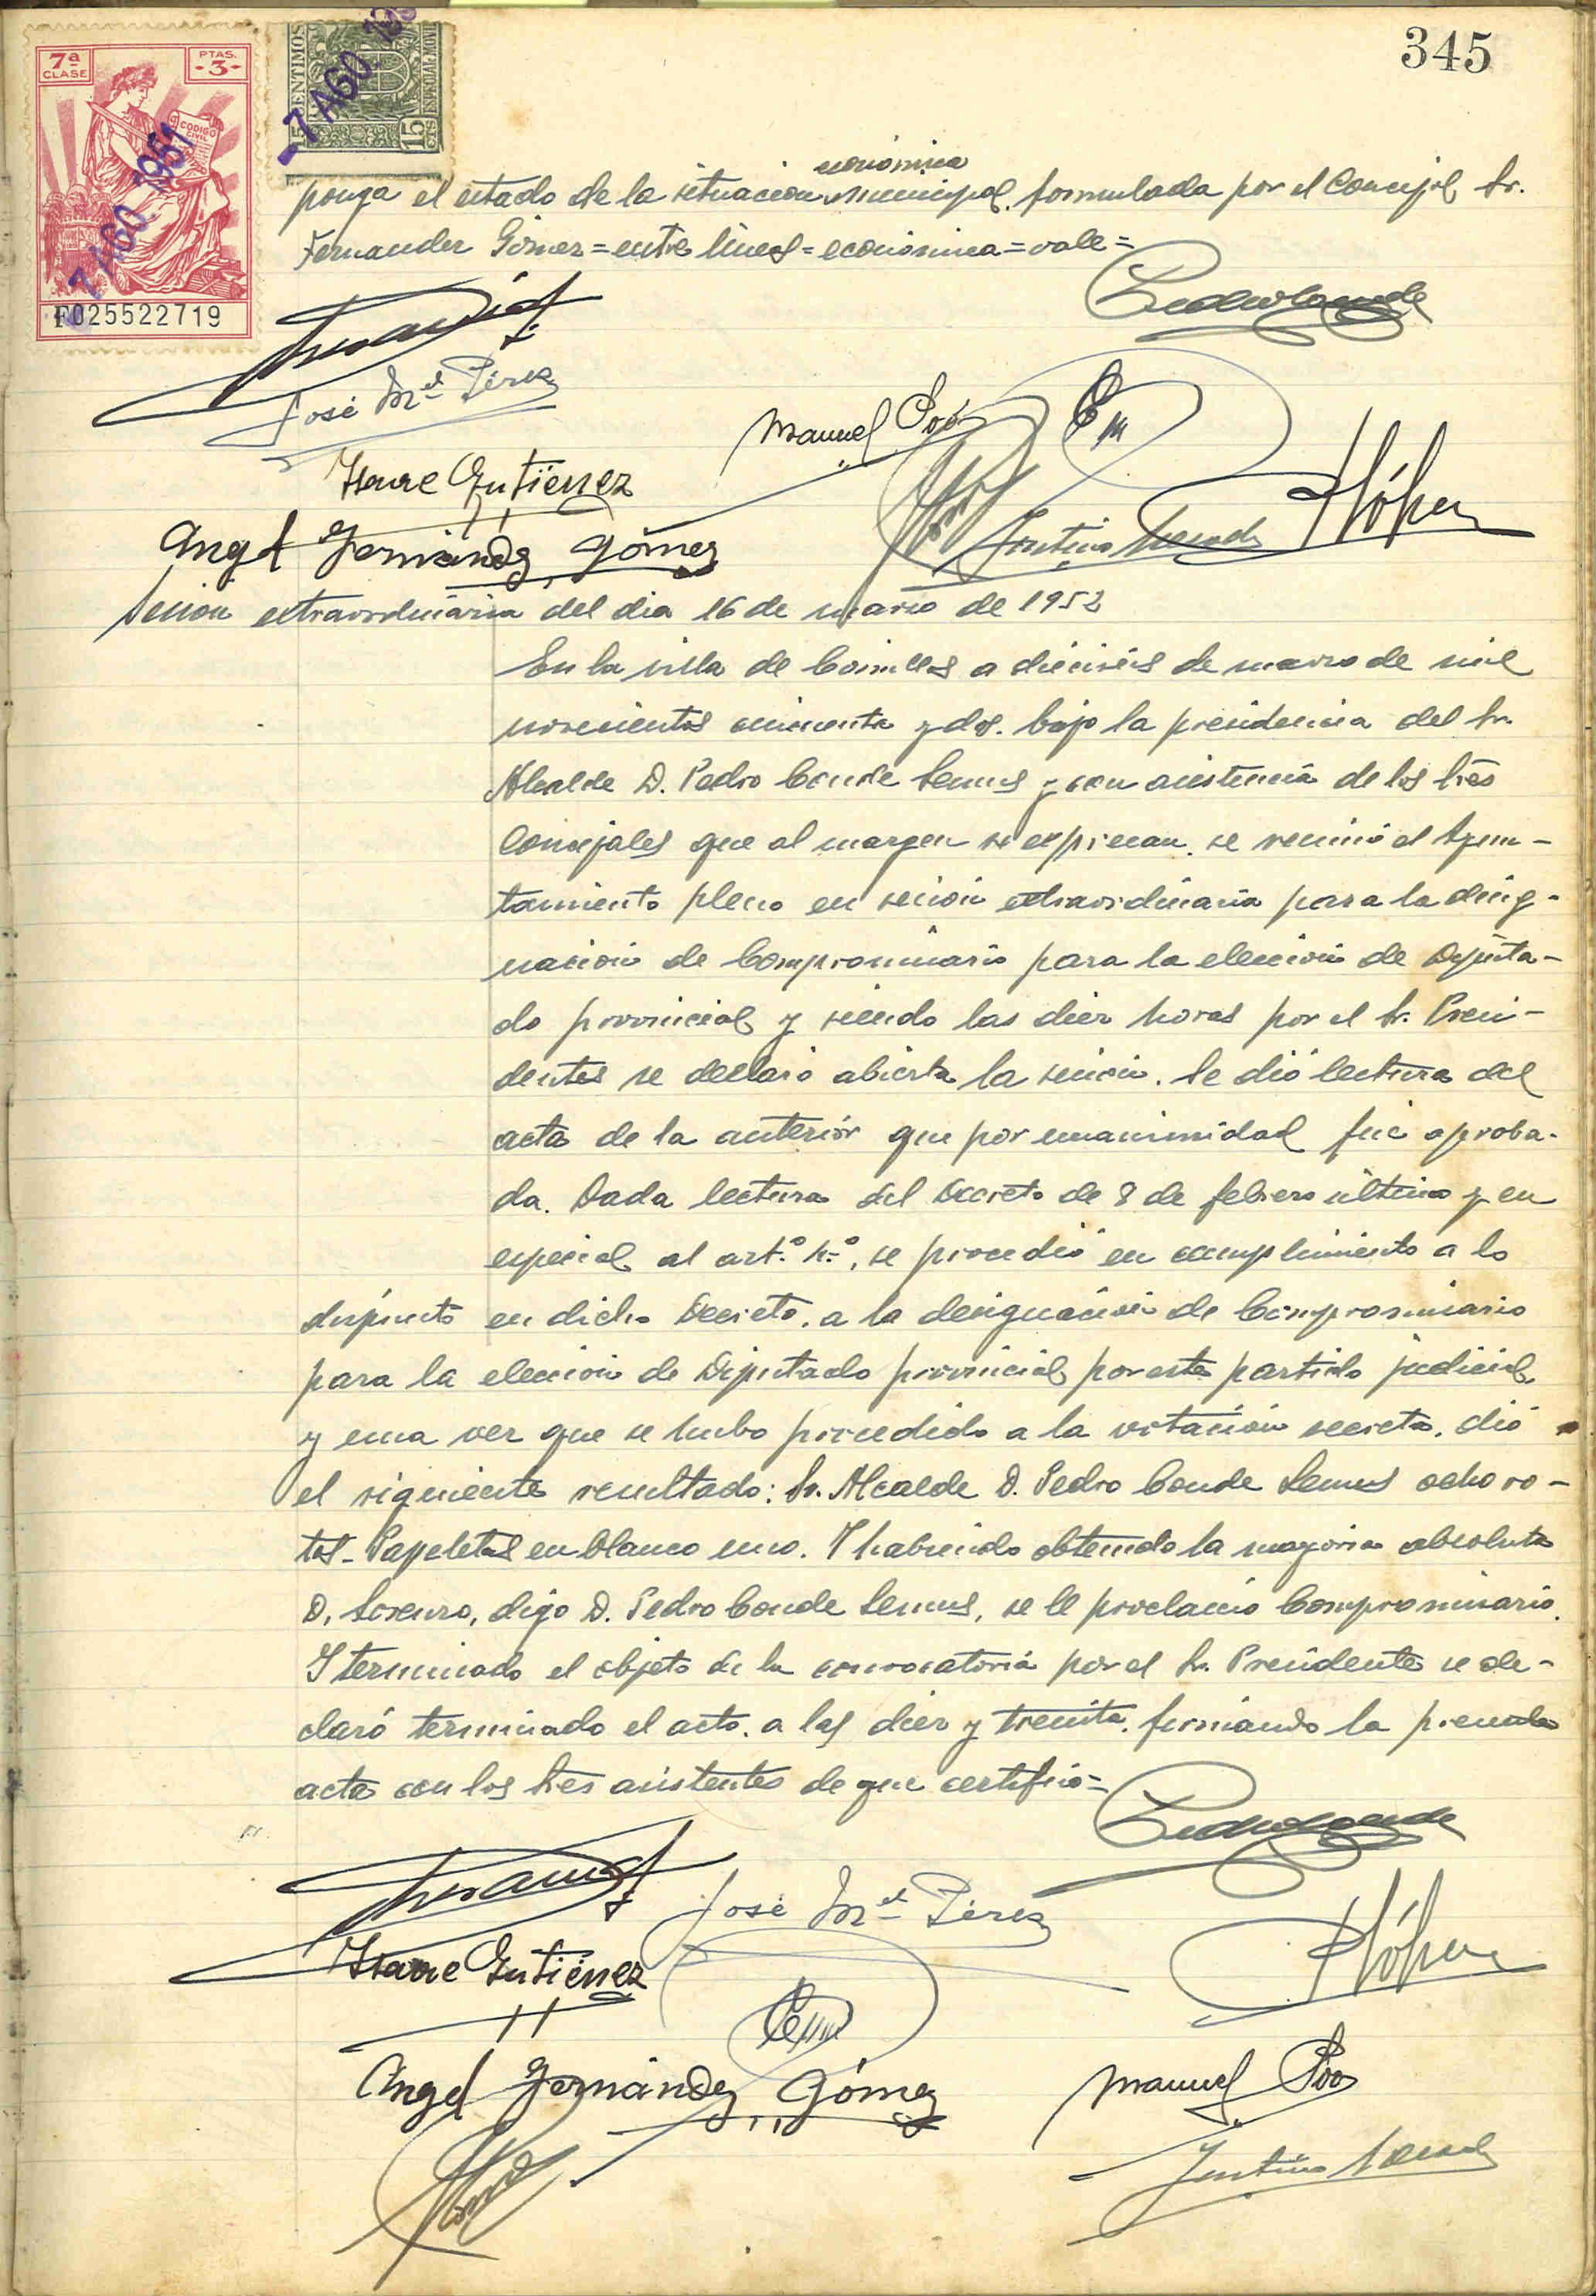 345
7ª CLASE
PTAS. -3-
CODIGO CIVIL
7 AGO 1951
F025522719
15 CENTIMOS
ESPECIAL MOVIL
15 CTS
-7 AGO 195
económica
ponga el estado de la situacion municipal, formulada por el Concejal Sr.
Fernandez Gómez = entre lineas = económica = vale =
Pedro Conde
José Mª Pérez
Manuel Poo
Isaac Gutiérrez
Angel Fernández Gómez
Sesion extraordinaria del dia 16 de marzo de 1952
En la villa de Comillas a dieciseis de marzo de mil
novecientos cincuenta y dos. bajo la presidencia del Sr.
Alcalde D. Pedro Conde Lemus y con asistencia de los Sres
Concejales que al margen se expresan, se reunió el Ayun-
tamiento pleno en sesión extraordinaria para la desig-
nacion de Compromisario para la elección de Diputa-
do provincial y siendo las diez horas por el Sr. Presi-
dente se declaró abierta la sesion. Se dió lectura del
acta de la anterior que por unanimidad fué aproba-
da. Dada lectura del Decreto de 8 de febrero último y en
especial al artº , se procedió en cumplimiento a lo
dispuesto en dicho Decreto, a la designación de Compromisario
para la eleccion de Diputado provincial por este partido judicial,
y una vez que se hubo procedido a la votación secreta, dió
el siguiente resultado: Sr. Alcalde D. Pedro Conde Lemus ocho vo-
tos - Papeletas en blanco uno. Y habiendo obtenido la mayoria absoluta
D. Lorenzo, digo D. Pedro Conde Lemus, se le proclamó Compromisario.
Y terminado el objeto de la convocatoria por el Sr. Presidente se de-
claró terminado el acto, a las diez y treinta, firmando la presente
acta con los Sres asistentes de que certifico =
Pedro Conde
José Mª Pérez
Isaac Gutiérrez
Angel Fernández Gómez
Manuel Poo